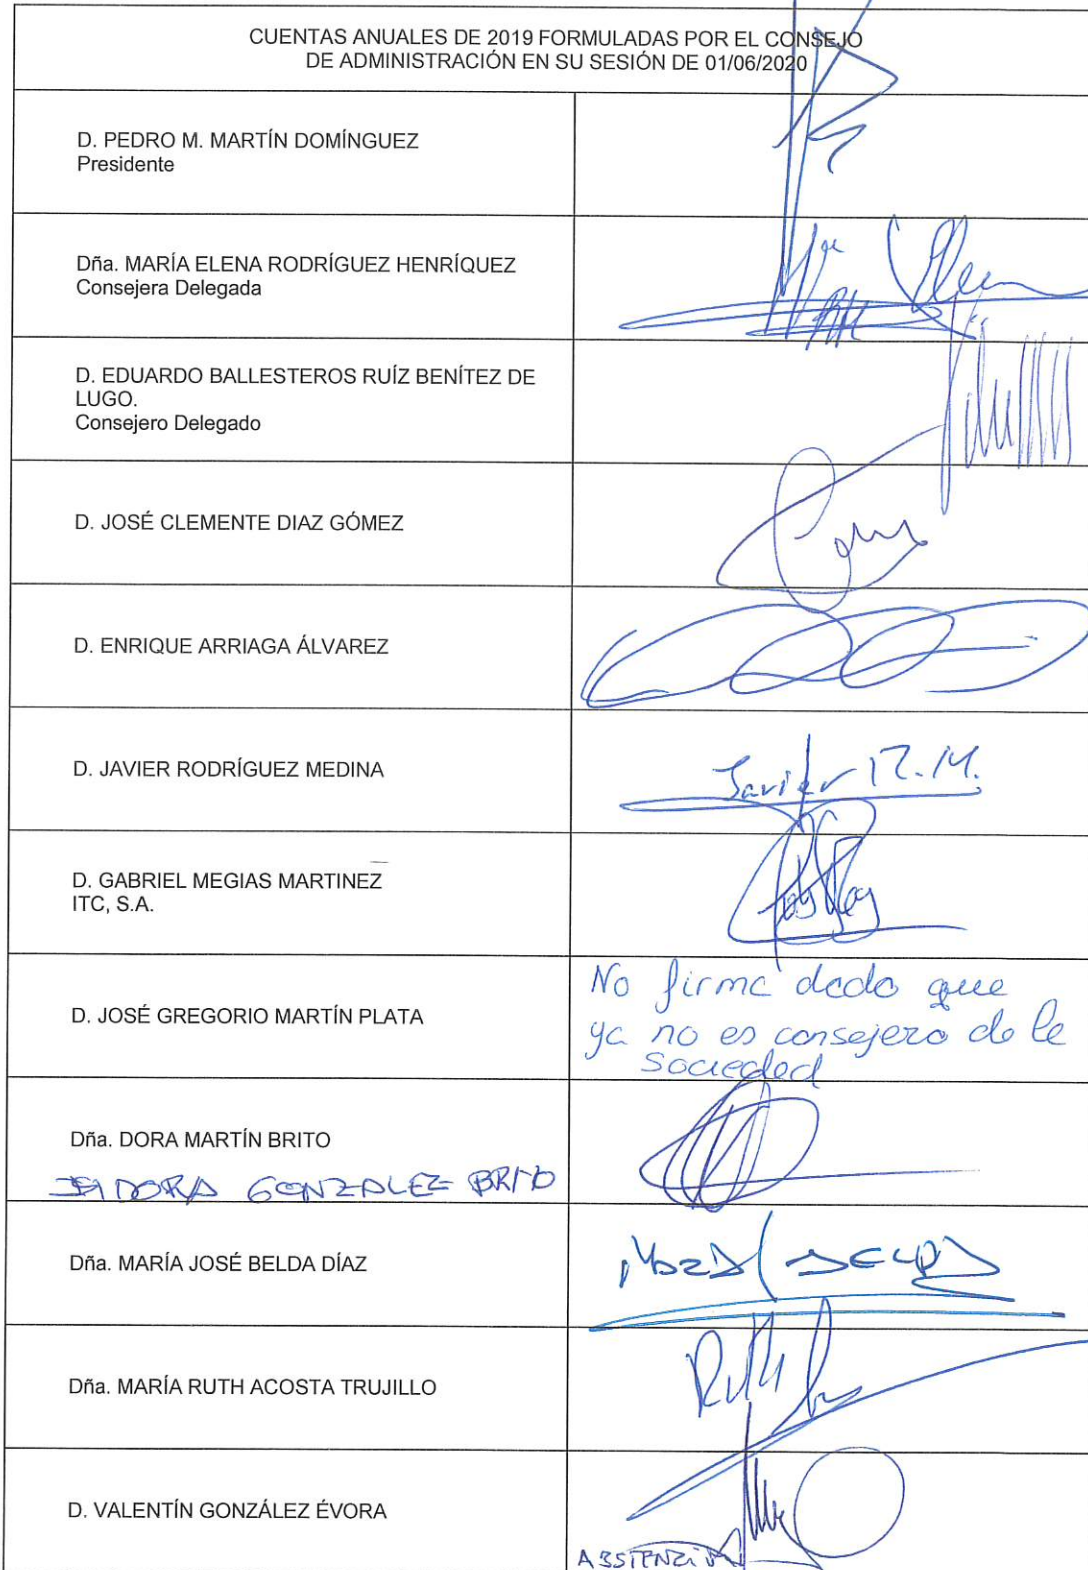 CUENTAS ANUALES DE 2019 FORMULADAS POR EL CONSEJO
DE ADMINISTRACIÓN EN SU SESIÓN DE 01/06/2020
D. PEDRO M. MARTÍN DOMÍNGUEZ
Presidente
Dña. MARÍA ELENA RODRÍGUEZ HENRÍQUEZ
Consejera Delegada
D. EDUARDO BALLESTEROS RUÍZ BENÍTEZ DE
LUGO.
Consejero Delegado
D. JOSÉ CLEMENTE DIAZ GÓMEZ
D. ENRIQUE ARRIAGA ÁLVAREZ
D. JAVIER RODRÍGUEZ MEDINA
Javier R. M.
D. GABRIEL MEGIAS MARTINEZ
ITC, S.A.
D. JOSÉ GREGORIO MARTÍN PLATA
No firma dado que
ya no es consejero de la
Sociedad
Dña. DORA MARTÍN BRITO
ISIDORA GONZALEZ BRITO
Dña. MARÍA JOSÉ BELDA DÍAZ
Dña. MARÍA RUTH ACOSTA TRUJILLO
Ruth
D. VALENTÍN GONZÁLEZ ÉVORA
ABSTENCIÓN